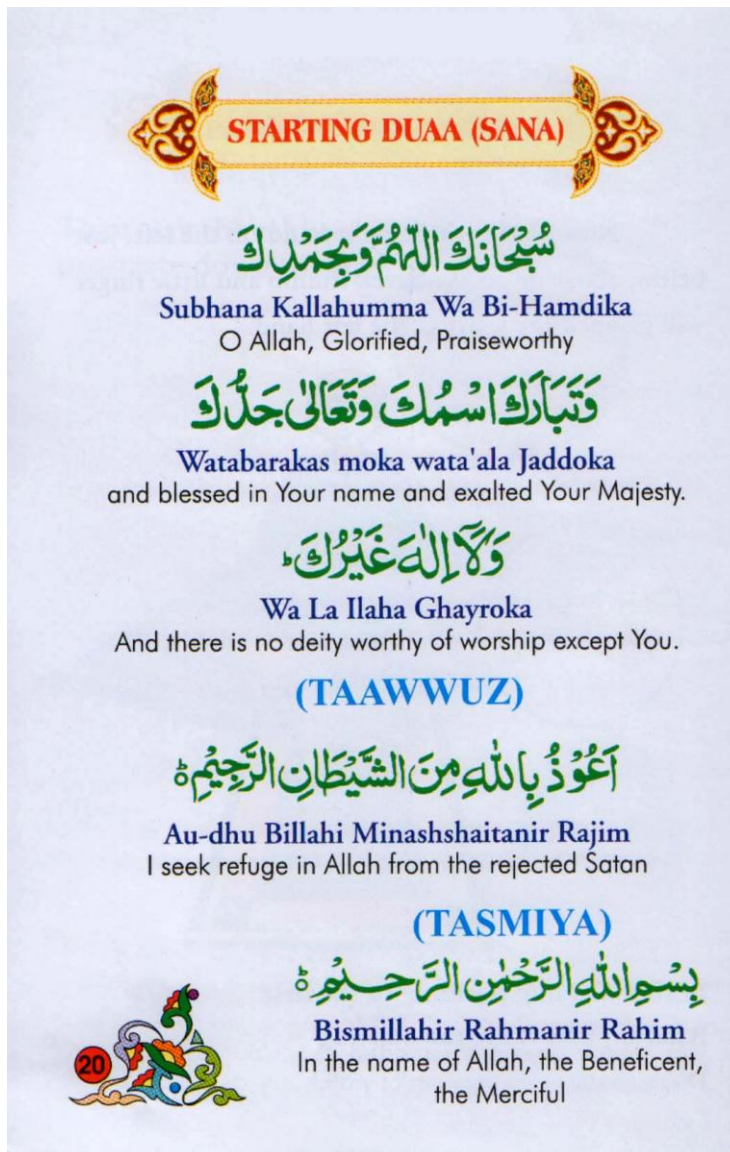 STARTING DUAA (SANA)
سُبْحَانَكَ اللّٰهُمَّ وَبِحَمْدِكَ
Subhana Kallahumma Wa Bi-Hamdika
O Allah, Glorified, Praiseworthy
وَتَبَارَكَ اسْمُكَ وَتَعَالٰى جَدُّكَ
Watabarakas moka wata'ala Jaddoka
and blessed in Your name and exalted Your Majesty.
وَلَآ اِلٰهَ غَيْرُكَ ؕ
Wa La Ilaha Ghayroka
And there is no deity worthy of worship except You.
(TAAWWUZ)
اَعُوْذُ بِاللّٰهِ مِنَ الشَّيْطَانِ الرَّجِيْمِ ؕ
Au-dhu Billahi Minashshaitanir Rajim
I seek refuge in Allah from the rejected Satan
(TASMIYA)
بِسْمِ اللّٰهِ الرَّحْمٰنِ الرَّحِـيْمِ ؕ
Bismillahir Rahmanir Rahim
In the name of Allah, the Beneficent,
the Merciful
20